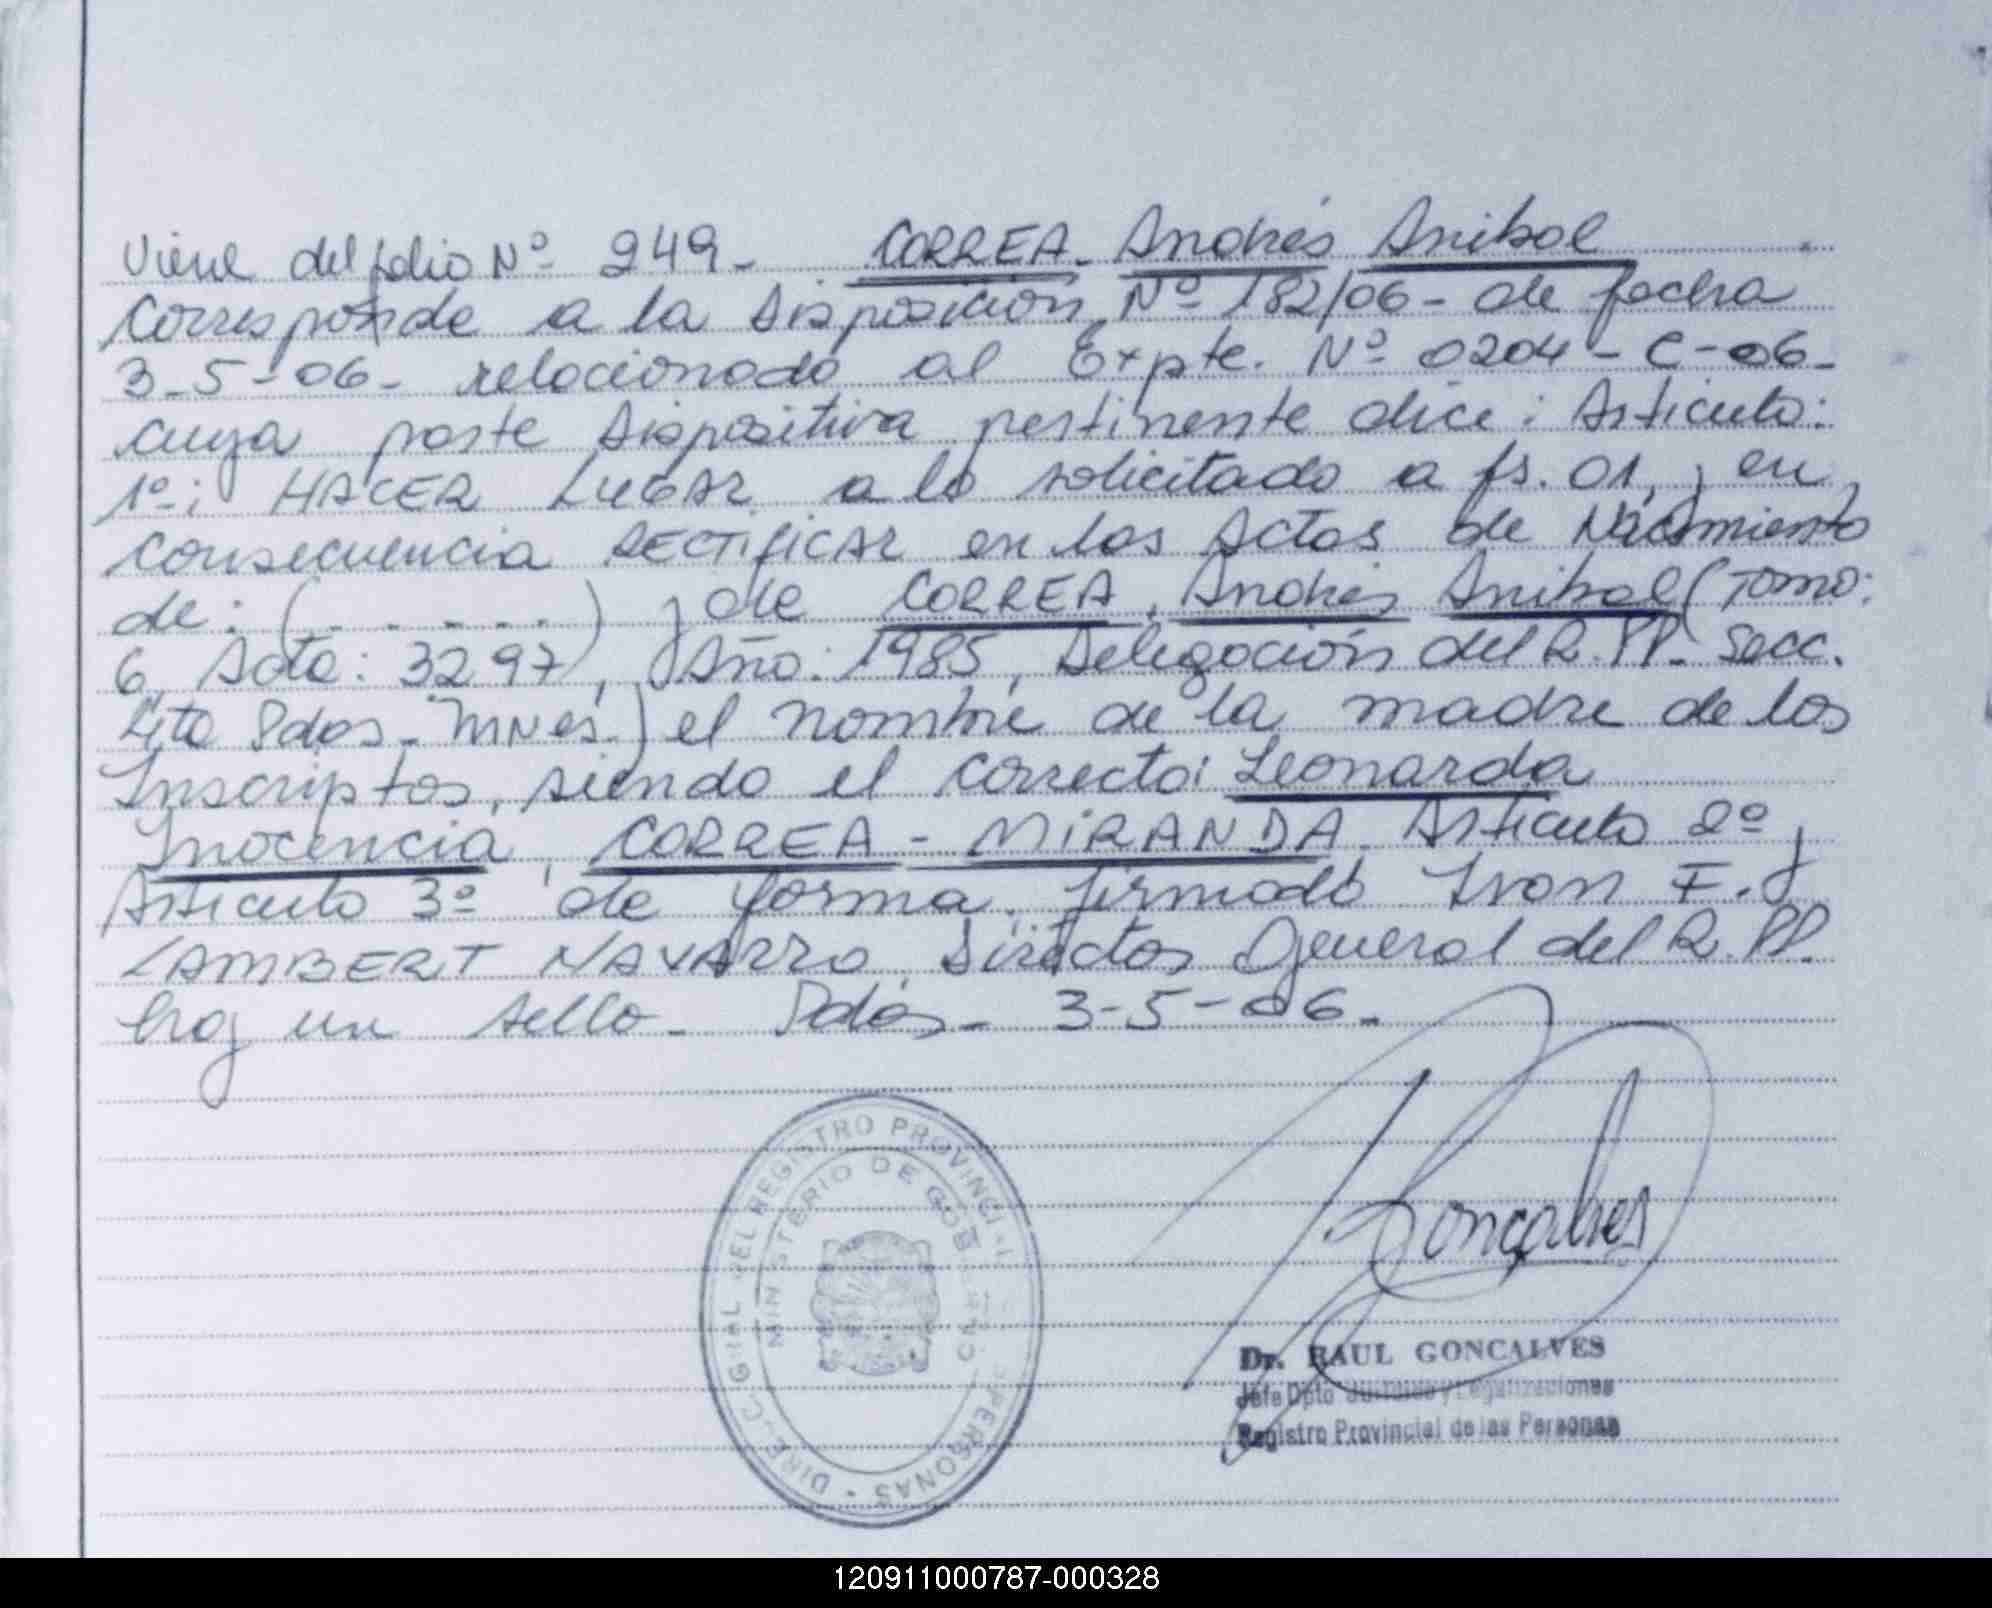 Viene del folio Nº 249- CORREA- Andrés Anibal
Corresponde a la Disposición Nº 182/06- de fecha
3-5-06- relacionado al Expte. Nº 0204-C-06-
cuya parte Dispositiva pertinente dice: Articulo:
1º: HACER LUGAR a lo solicitado a fs. 01, y en
consecuencia RECTIFICAR en las Actas de Nacimiento
de: (. - - - - -) y de CORREA, Andrés Anibal (Tomo:
6, Acta: 3297, Año: 1985, Delegación del R.PP- Secc.
4ta Pdas- MNes.) el nombre de la madre de los
Inscriptos, siendo el correcto: Leonarda
Inocencia, CORREA - MIRANDA. Articulo 2º y
Articulo 3º de forma. firmado Ivon F.
LAMBERT NAVARRO, Director General del R.PP.
hay un sello- Pdas- 3-5-06-
Goncalves
DIREC. GRAL DEL REGISTRO PROVINCIAL PERSONAS
MINISTERIO DE GOBIERNO
Dr. RAUL GONCALVES
Jefe Dpto Jurídico y Legalizaciones
Registro Provincial de las Personas
120911000787-000328